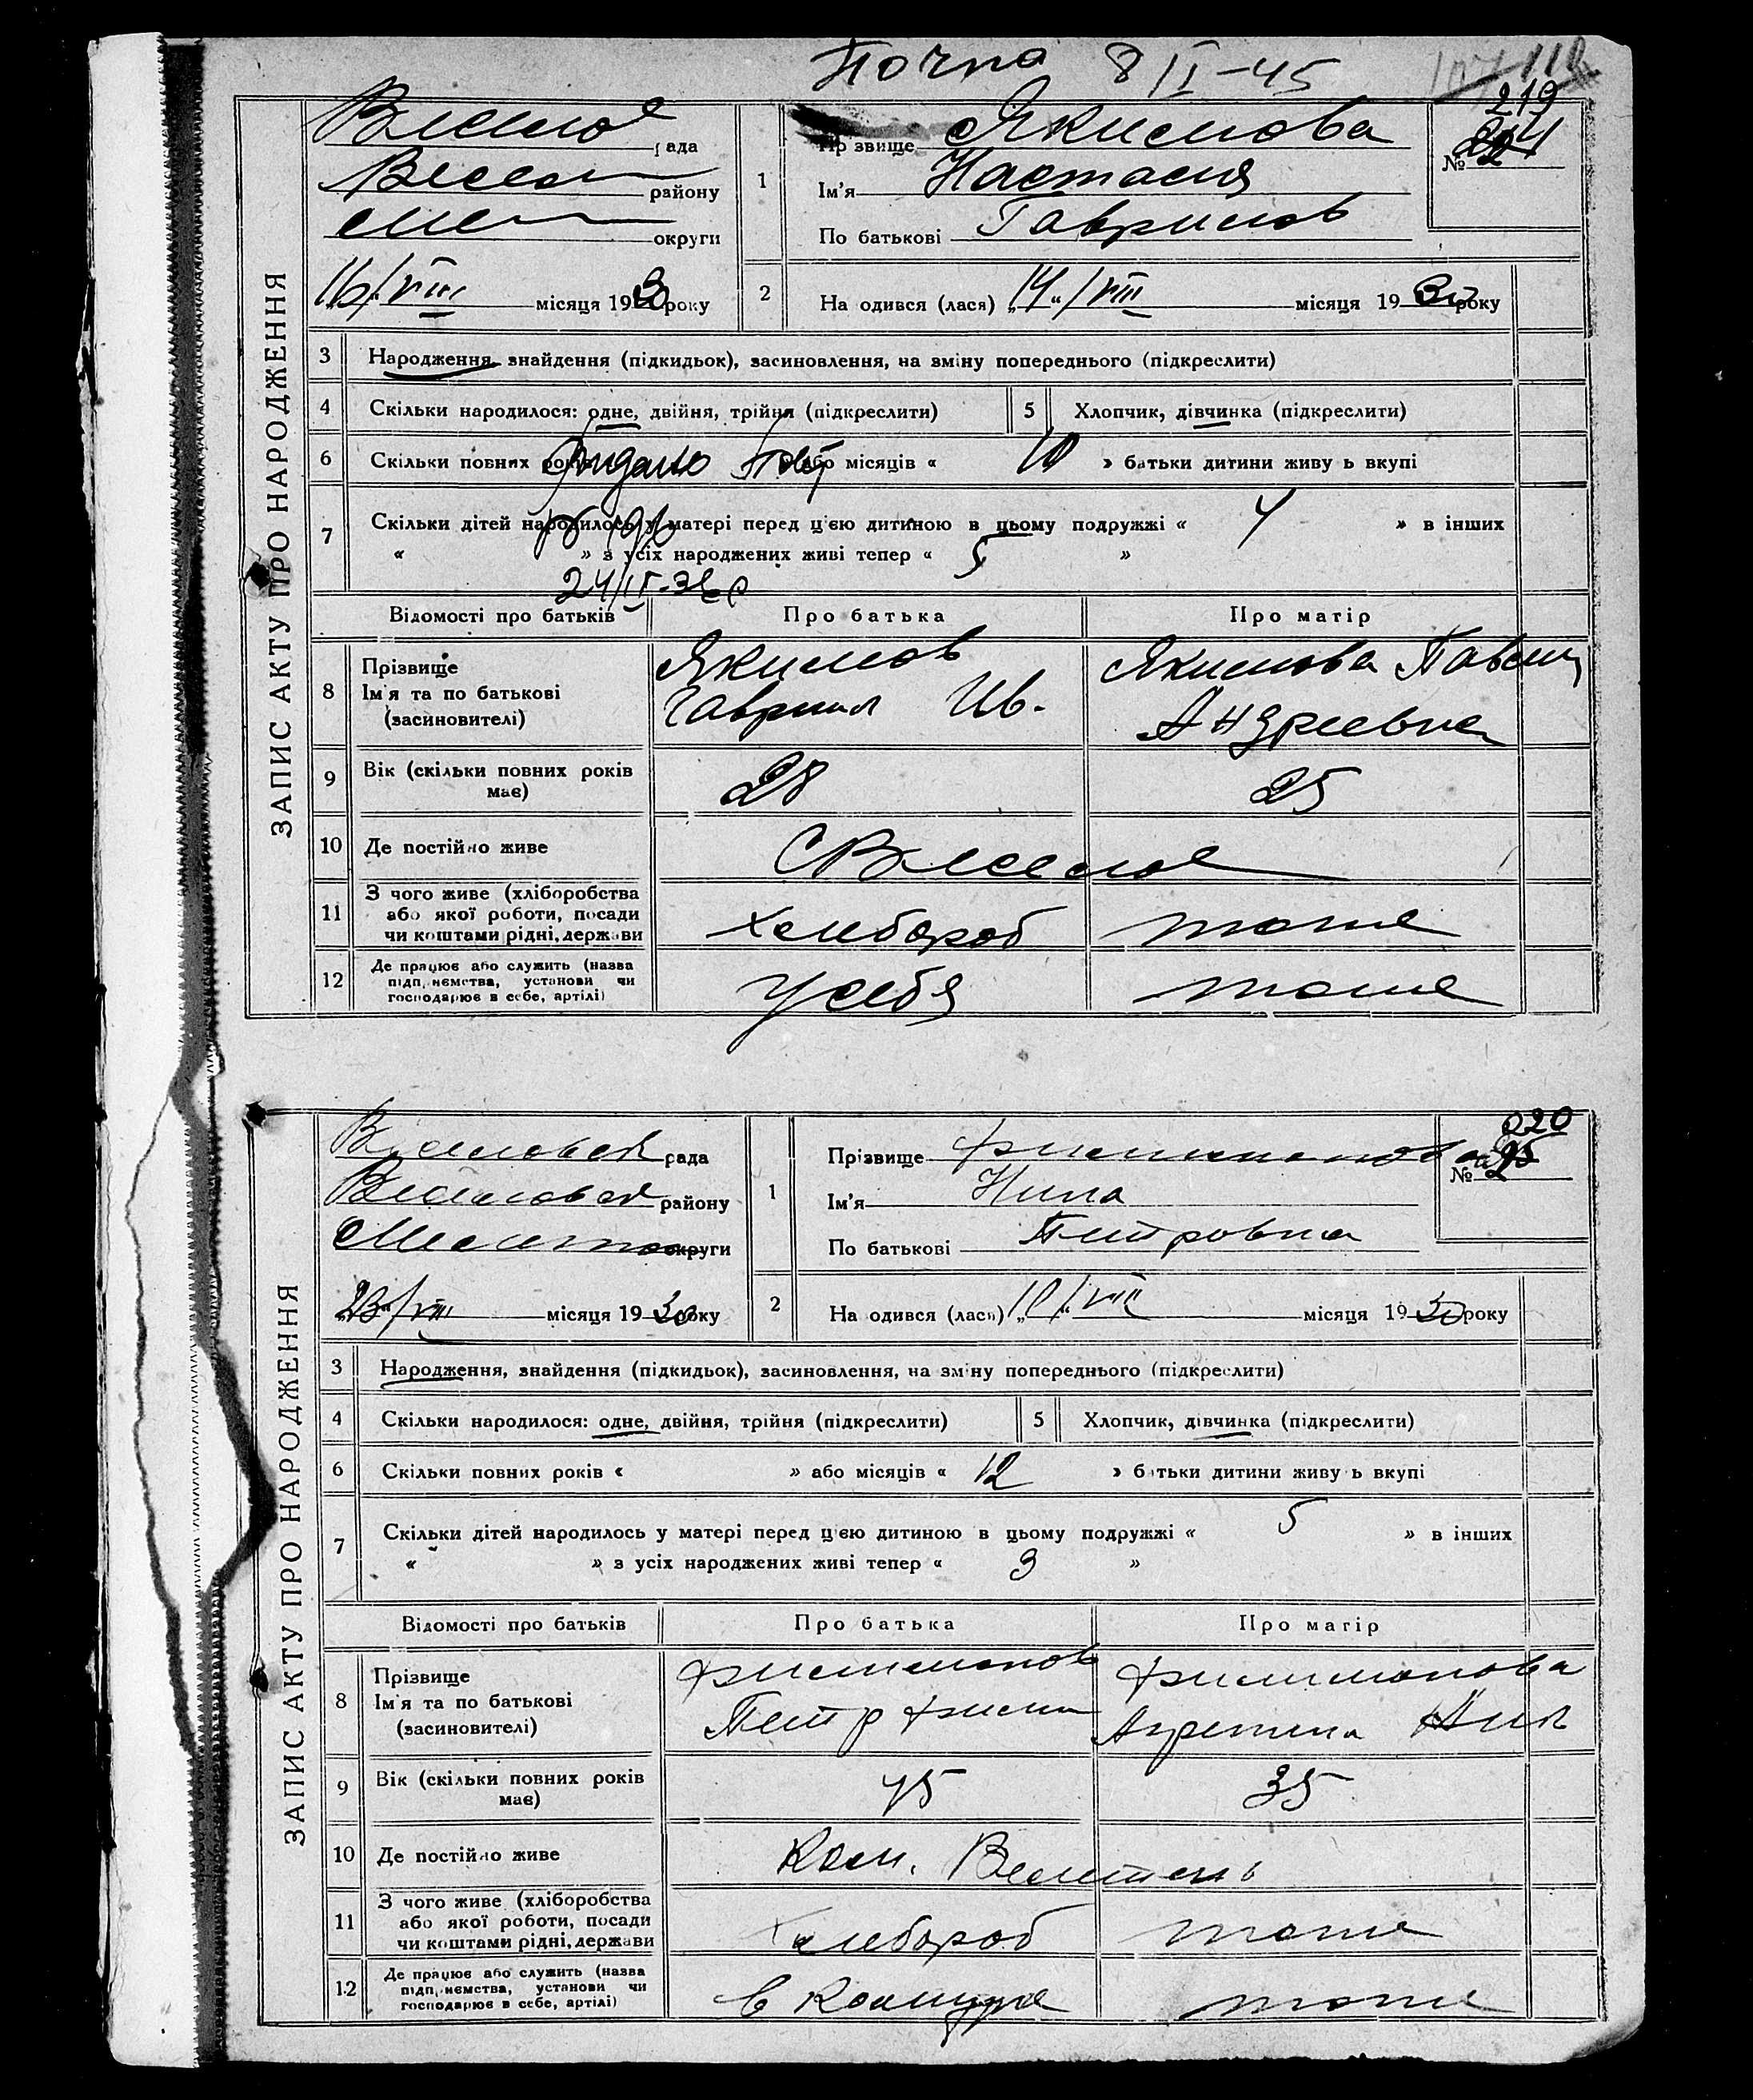 8 II-45
219
ЗАПИС АКТУ ПРО НАРОДЖЕННЯ
Веселое рада
району
округи
16/VIII місяця 1930 року
1
Прізвище Якимова
Ім'я Настасия
По батькові Гаврилов
№
2
Народився (лася) „14“/VIII місяця 1930 року
3 Народження, знайдення (підкидьок), засиновлення, на зміну попереднього (підкреслити)
4 Скільки народилося: одне, двійня, трійня (підкреслити)
5 Хлопчик, дівчинка (підкреслити)
6 Скільки повних років або місяців « 10 » батьки дитини живуть вкупі
7 Скільки дітей народилось у матері перед цією дитиною в цьому подружжі « 4 » в інших
« » з усіх народжених живі тепер « 5 »
Відомості про батьків Про батька Про матір
8 Прізвище Якимов Якимова
Ім'я та по батькові Гавриил Ив. Андреевна
(засиновителі)
9 Вік (скільки повних років має) 28 25
10 Де постійно живе С Веселое
11 З чого живе (хліборобства або якої роботи, посади чи коштами рідні, держави Хлебороб тоже
12 Де працює або служить (назва підприємства, установи чи господарює в себе, артілі) У себя тоже
220
ЗАПИС АКТУ ПРО НАРОДЖЕННЯ
рада
району
округи
„23“/VIII місяця 1930 року
1
Прізвище Филимонова
Ім'я Нина
По батькові Петровна
№
2
Народився (лася) „10“/VIII місяця 1930 року
3 Народження, знайдення (підкидьок), засиновлення, на зміну попереднього (підкреслити)
4 Скільки народилося: одне, двійня, трійня (підкреслити)
5 Хлопчик, дівчинка (підкреслити)
6 Скільки повних років « » або місяців « 12 » батьки дитини живуть вкупі
7 Скільки дітей народилось у матері перед цією дитиною в цьому подружжі « 5 » в інших
« » з усіх народжених живі тепер « 3 »
Відомості про батьків Про батька Про матір
8 Прізвище Филимонов Филимонова
Ім'я та по батькові Петр
(засиновителі)
9 Вік (скільки повних років має) 45 35
10 Де постійно живе Ком.
11 З чого живе (хліборобства або якої роботи, посади чи коштами рідні, держави Хлебороб тоже
12 Де працює або служить (назва підприємства, установи чи господарює в себе, артілі) в Коммуне тоже